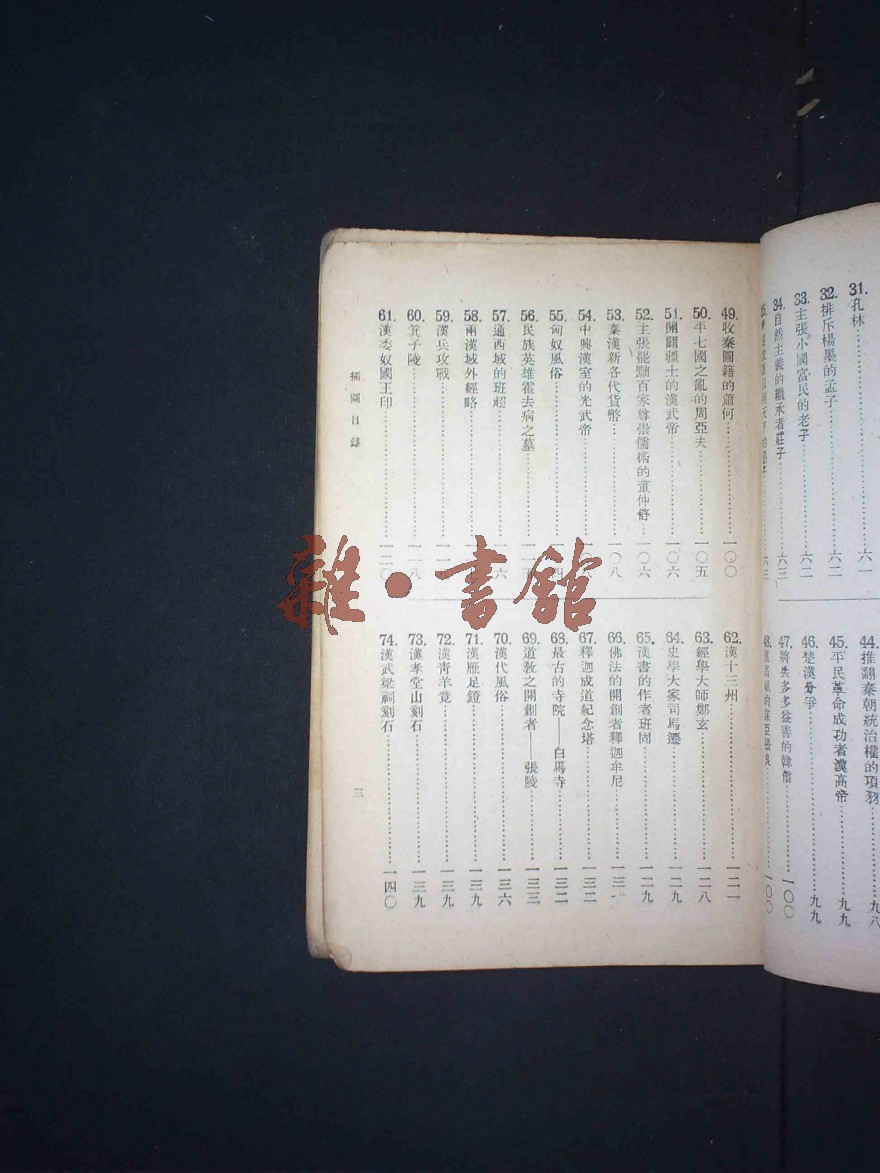 31. 孔林……六一
32. 排斥楊墨的孟子……六二
33. 主張小國富民的老子……六二
34. 自然主義的繼承者莊子……六三
六三
44. 推翻秦朝統治權的項羽……九八
45. 平民革命成功者漢高帝……九九
46. 楚漢分爭……九九
47. 將兵多多益善的韓信……一〇〇
48. 一〇〇
49. 收秦圖籍的蕭何……一〇〇
50. 平七國之亂的周亞夫……一〇五
51. 開闢疆土的漢武帝……一〇六
52. 主張罷黜百家尊崇儒術的董仲舒……一〇六
53. 秦漢新各代貨幣……一〇八
54. 中興漢室的光武帝
55. 匈奴風俗
56. 民族英雄霍去病之墓
57. 通西域的班超
58. 兩漢域外經略
59. 漢兵攻戰
60. 箕子陵……一一八
61. 漢委奴國王印……一二〇
62. 漢十三州……一二一
63. 經學大師鄭玄……一二八
64. 史學大家司馬遷……一二九
65. 漢書的作者班固……一二九
66. 佛法的開創者釋迦牟尼……一三一
67. 釋迦成道紀念塔……一三二
68. 最古的寺院——白馬寺……一三二
69. 道教之開創者——張陵……一三三
70. 漢代風俗……一三六
71. 漢雁足鐙……一三九
72. 漢靑羊竟……一三九
73. 漢孝堂山刻石……一三九
74. 漢武梁祠刻石……一四〇
插圖目錄
三
雜·書館